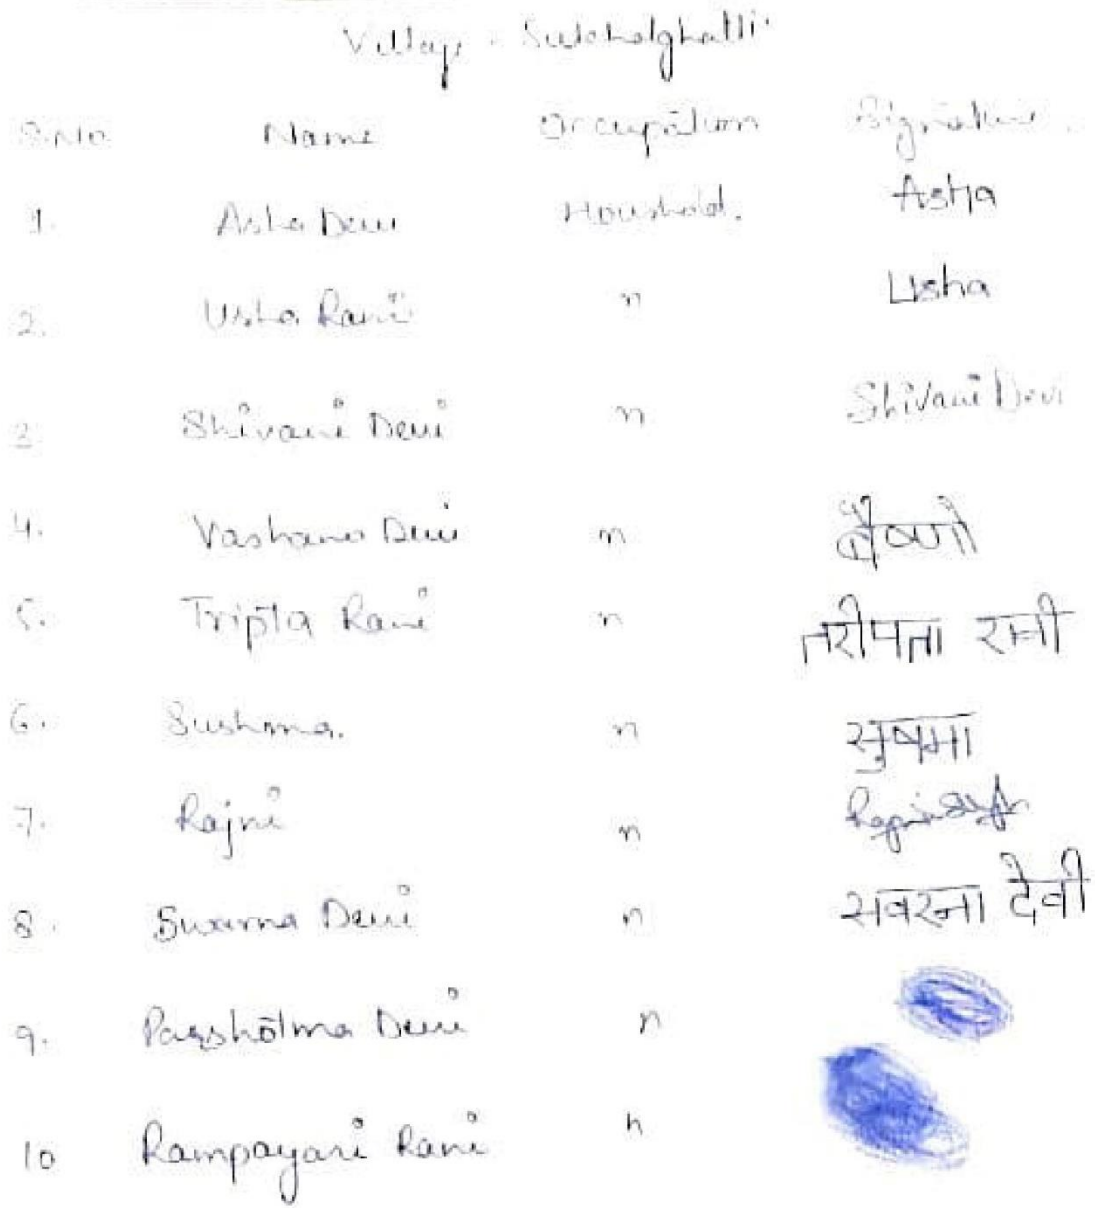 Village - Sukhalghatti
S.No. Name Occupation Signature.
1. Asha Devi Houshold. Asha
2. Usha Rani " Usha
3. Shivani Devi " Shivani Devi
4. Vashano Devi " वैष्णौ
5. Tripta Rani " तरीपता रानी
6. Sushma. " सुषमा
7. Rajni "
8. Swarna Devi " सवरना देवी
9. Parshotma Devi "
10 Rampayari Rani "